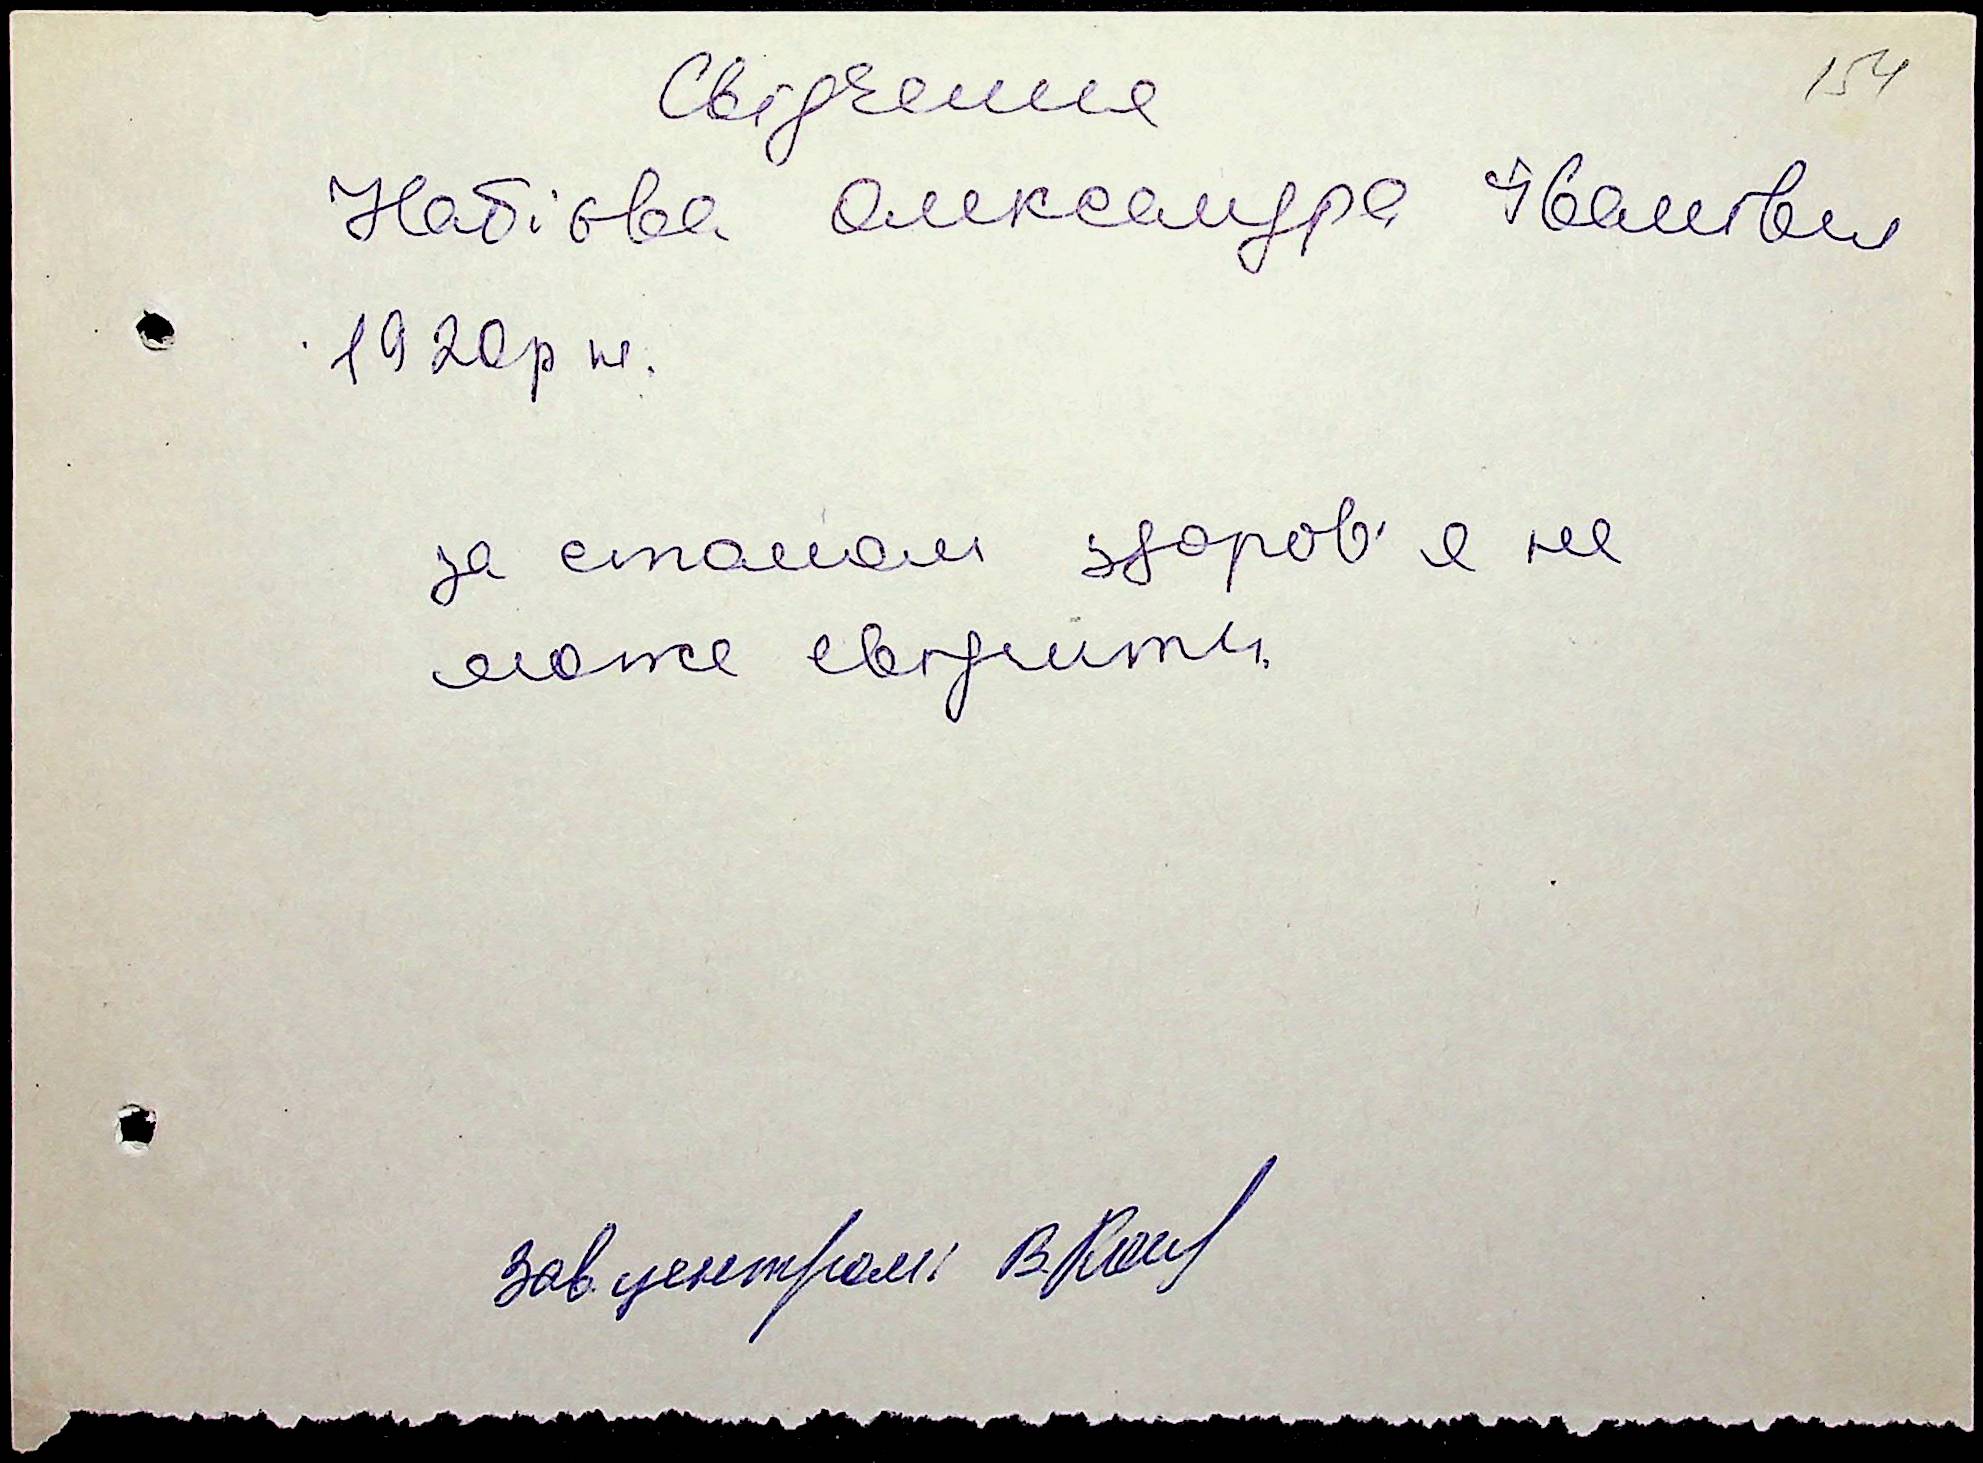 154
Свідчення
Набієва Олександра Іванівна
1920р н.
за станом здоров'я не
може свідчити.
Зав. центром: В.